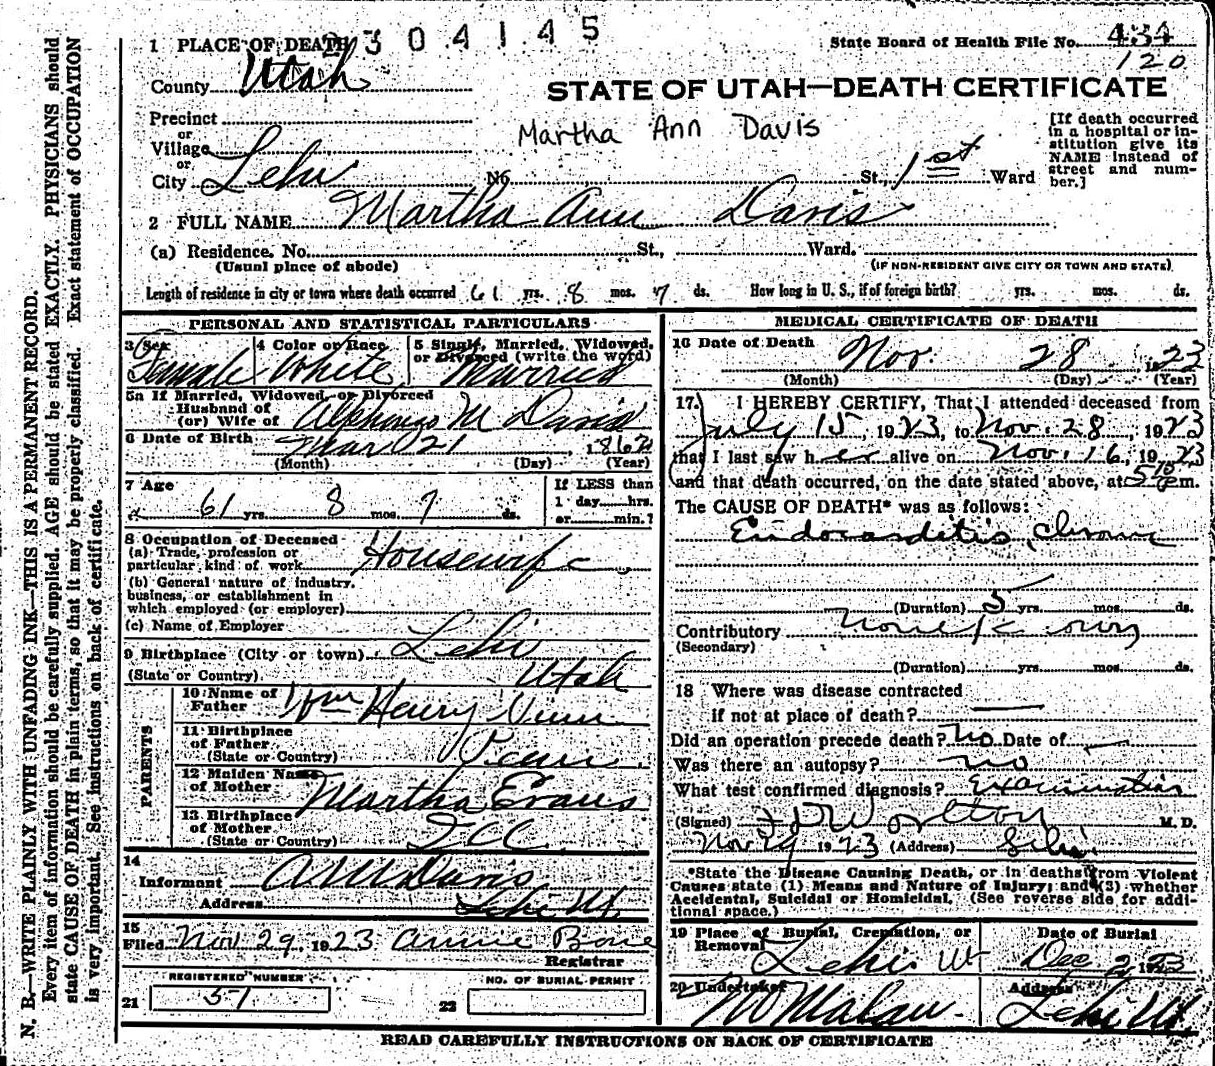 N. B.—WRITE PLAINLY WITH UNFADING INK—THIS IS A PERMANENT RECORD.
Every item of information should be carefully supplied. AGE should be stated EXACTLY. PHYSICIANS should
state CAUSE OF DEATH in plain terms, so that it may be properly classified. Exact statement of OCCUPATION
is very important. See instructions on back of certificate.
2304145
State Board of Health File No. 434
120
1 PLACE OF DEATH
County Utah
STATE OF UTAH—DEATH CERTIFICATE
Martha Ann Davis
Precinct
or
Village
or
City Lehi No. St., 1st Ward
[If death occurred
in a hospital or in-
stitution give its
NAME instead of
street and num-
ber.]
2 FULL NAME Martha Ann Davis
(a) Residence. No. St., Ward.
(Usual place of abode) (IF NON-RESIDENT GIVE CITY OR TOWN AND STATE)
Length of residence in city or town where death occurred 61 yrs. 8 mos. 7 ds. How long in U. S., if of foreign birth? yrs. mos. ds.
PERSONAL AND STATISTICAL PARTICULARS
3 Sex Female
4 Color or Race White
5 Single, Married, Widowed,
or Divorced (write the word)
Married
5a If Married, Widowed, or Divorced
Husband of
(or) Wife of Alphonzo M Davis
6 Date of Birth Mar 21, 1862
(Month) (Day) (Year)
7 Age
61 yrs. 8 mos. 7 ds.
If LESS than
1 day hrs.
or min.?
8 Occupation of Deceased
(a) Trade, profession or
particular kind of work Housewife
(b) General nature of industry,
business, or establishment in
which employed (or employer)
(c) Name of Employer
9 Birthplace (City or town) Lehi
(State or Country) Utah
PARENTS
10 Name of
Father Wm Henry Winn
11 Birthplace
of Father
(State or Country)
12 Maiden Name
of Mother Martha Evans
13 Birthplace
of Mother
(State or Country) Ill
14
Informant A M Davis
Address Lehi Ut.
15
Filed Nov 29, 1923 Annie Bone
Registrar
REGISTERED NUMBER
21 51
NO. OF BURIAL PERMIT
22
MEDICAL CERTIFICATE OF DEATH
16 Date of Death Nov. 28 1923
(Month) (Day) (Year)
17. I HEREBY CERTIFY, That I attended deceased from
July 15, 1923, to Nov. 28, 1923
that I last saw her alive on Nov. 16, 1923
and that death occurred, on the date stated above, at m.
The CAUSE OF DEATH* was as follows:
Endocarditis, chronic
(Duration) 5 yrs. mos. ds.
Contributory none
(Secondary)
(Duration) yrs. mos. ds.
18 Where was disease contracted
if not at place of death?
Did an operation precede death? no Date of
Was there an autopsy? no
What test confirmed diagnosis? Examination
(Signed) Worlton M. D.
Nov 29 1923 (Address) Lehi
*State the Disease Causing Death, or in deaths from Violent
Causes state (1) Means and Nature of Injury; and (3) whether
Accidental, Suicidal or Homicidal. (See reverse side for addi-
tional space.)
19 Place of Burial, Cremation, or
Removal
Lehi Ut
Date of Burial
Dec 2, 1923
20 Undertaker
Address
Lehi Ut.
READ CAREFULLY INSTRUCTIONS ON BACK OF CERTIFICATE